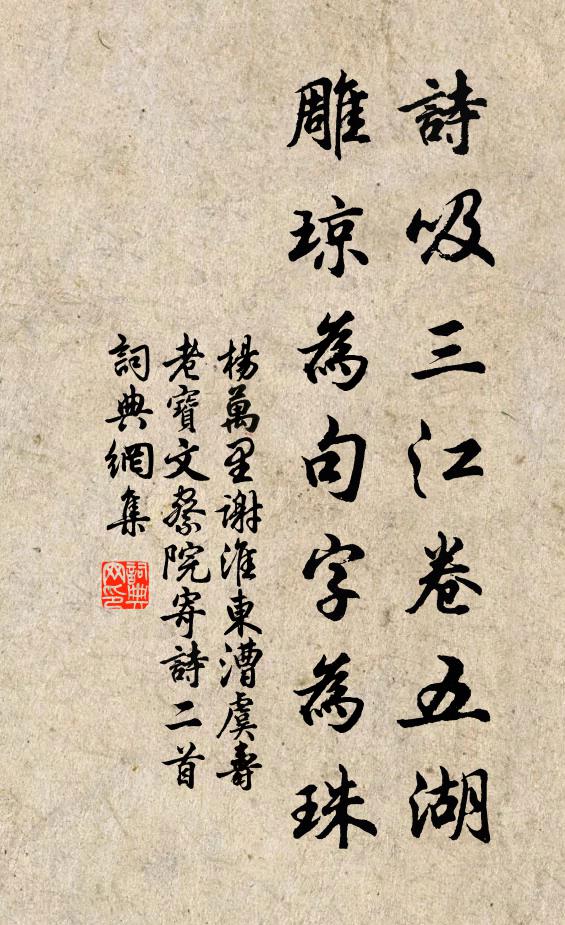 詩吸三江卷五湖
雕琼為句字為珠
楊萬里謝淮東漕虞壽
老寶文察院寄詩二首
詞典網集
詞典網印